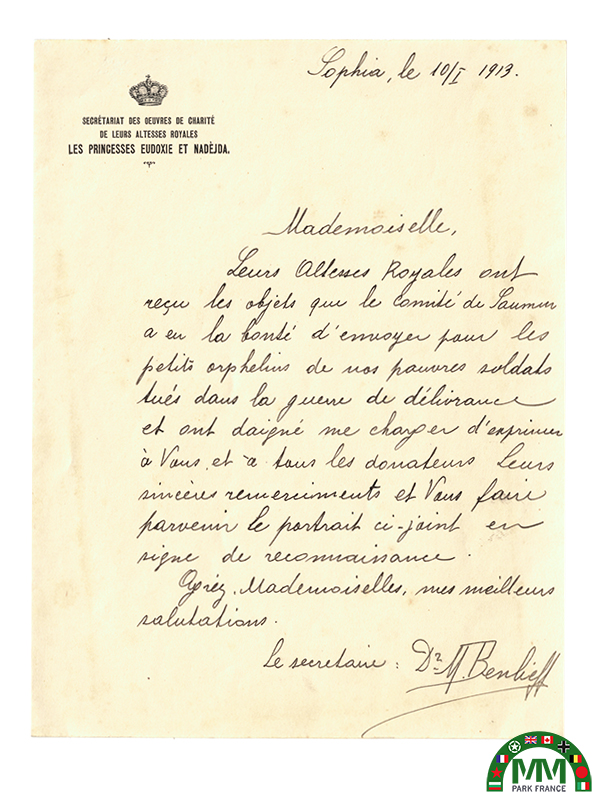 Sophia, le 10/I 1913.
SECRÉTARIAT DES OEUVRES DE CHARITÉ
DE LEURS ALTESSES ROYALES
LES PRINCESSES EUDOXIE ET NADÈJDA.
Mademoiselle,
Leurs Altesses Royales ont
reçu les objets que le Comité de Saumur
a eu la bonté d'envoyer pour les
petits orphelins de nos pauvres soldats
tués dans la guerre de délivrance
et ont daigné me charger d'exprimer
à Vous et à tous les donateurs Leurs
sincères remerciments et Vous faire
parvenir le portrait ci-joint en
signe de reconnaissance.
Agréez, Mademoiselles, mes meilleurs
salutations.
Le secretaire : Dr M.
MM
PARK FRANCE